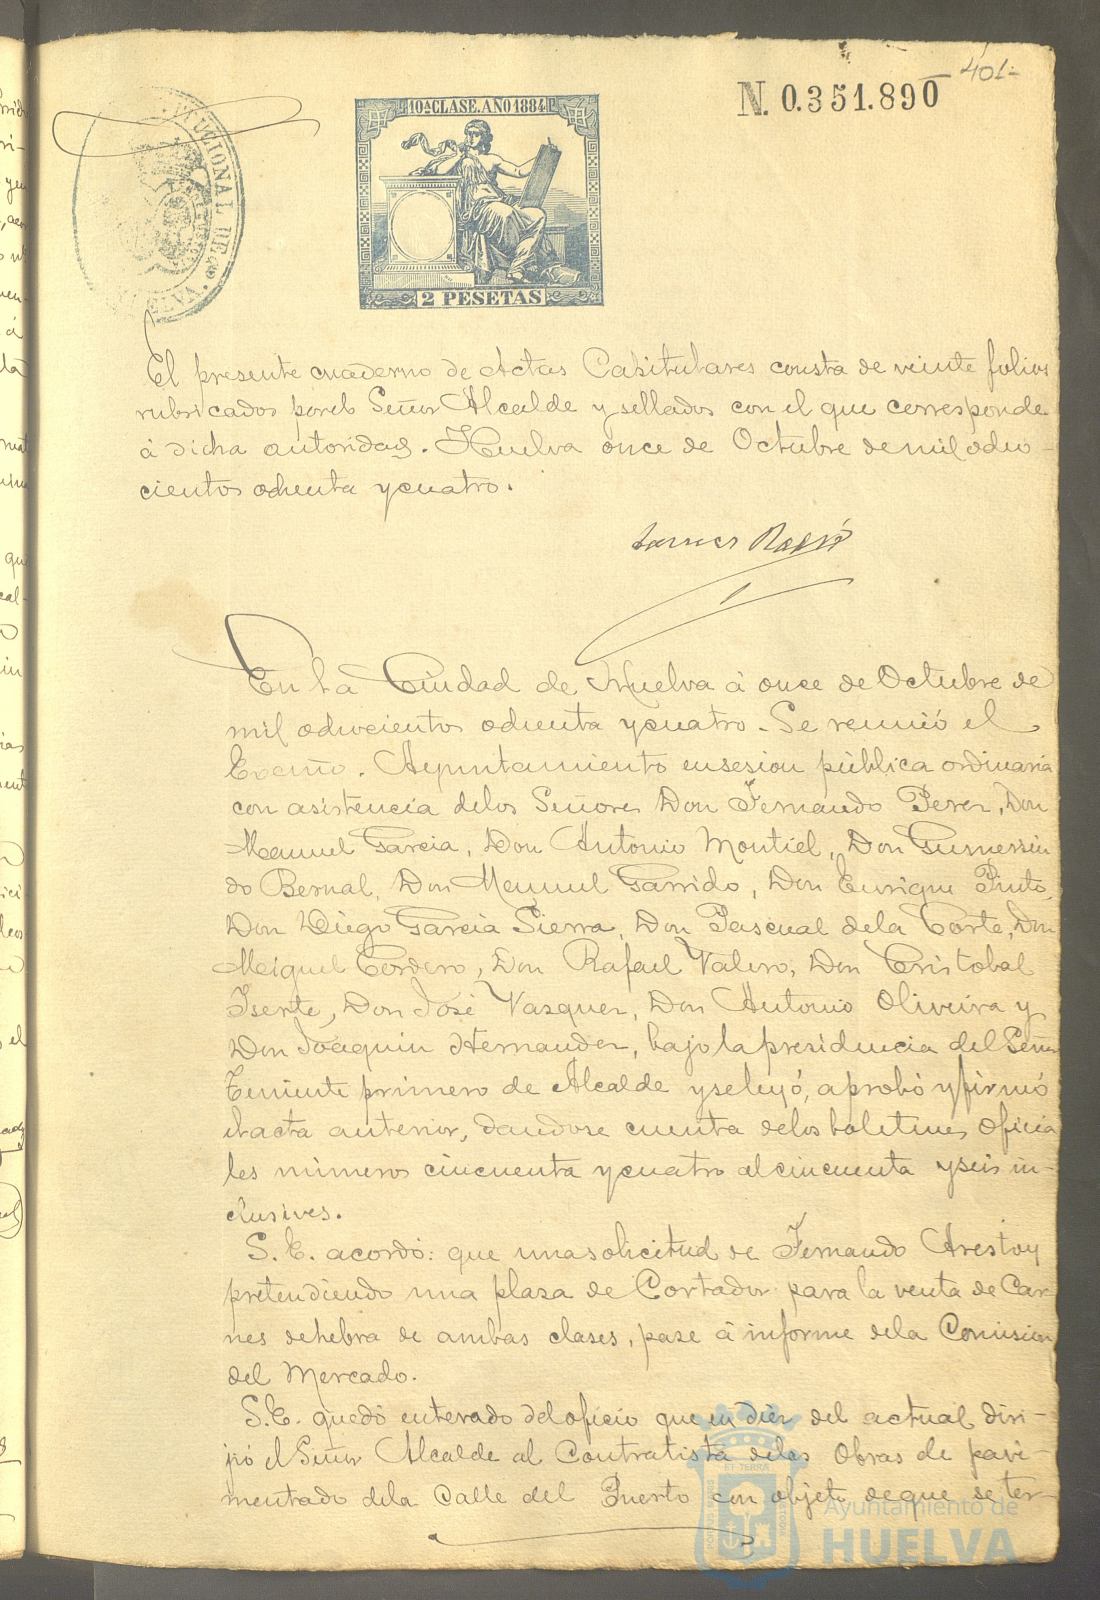 401-
N. 0.351.890
10ª CLASE. AÑO 1884
2 PESETAS
El presente cuaderno de Actas Capitulares consta de veinte folios
rubricados por el Señor Alcalde y sellados con el que corresponde
á dicha autoridad. Huelva once de Octubre de mil ocho-
cientos ochenta y cuatro.
En la Ciudad de Huelva á once de Octubre de
mil ochocientos ochenta y cuatro. Se reunió el
Excmo. Ayuntamiento en sesion pública ordinaria
con asistencia de los Señores Don Fernando Perez, Don
Manuel Garcia, Don Antonio Montiel, Don Gumersin
do Bernal, Don Manuel Garrido, Don Enrique Pinto,
Don Diego Garcia Sierra, Don Pascual de la Corte, Don
Miguel Cordero, Don Rafael Valero, Don Cristobal
Iserte, Don José Vazquez, Don Antonio Oliveira y
Don Joaquin Hernandez, bajo la presidencia del Señor
Teniente primero de Alcalde y se leyó, aprobó y firmó
el acta anterior, dandose cuenta de los boletines Oficia
les números cincuenta y cuatro al cincuenta y seis in-
clusives.
S.E. acordó: que una solicitud de Fernando Arestoy
pretendiendo una plaza de Cortador para la venta de Car
nes de hebra de ambas clases, pase á informe de la Comision
del Mercado.
S.E. quedó enterado del oficio que en diez del actual diri-
jió el Señor Alcalde al Contratista de las Obras de pavi-
mentado de la Calle del Puerto con objeto de que se ter-
Ayuntamiento de
HUELVA